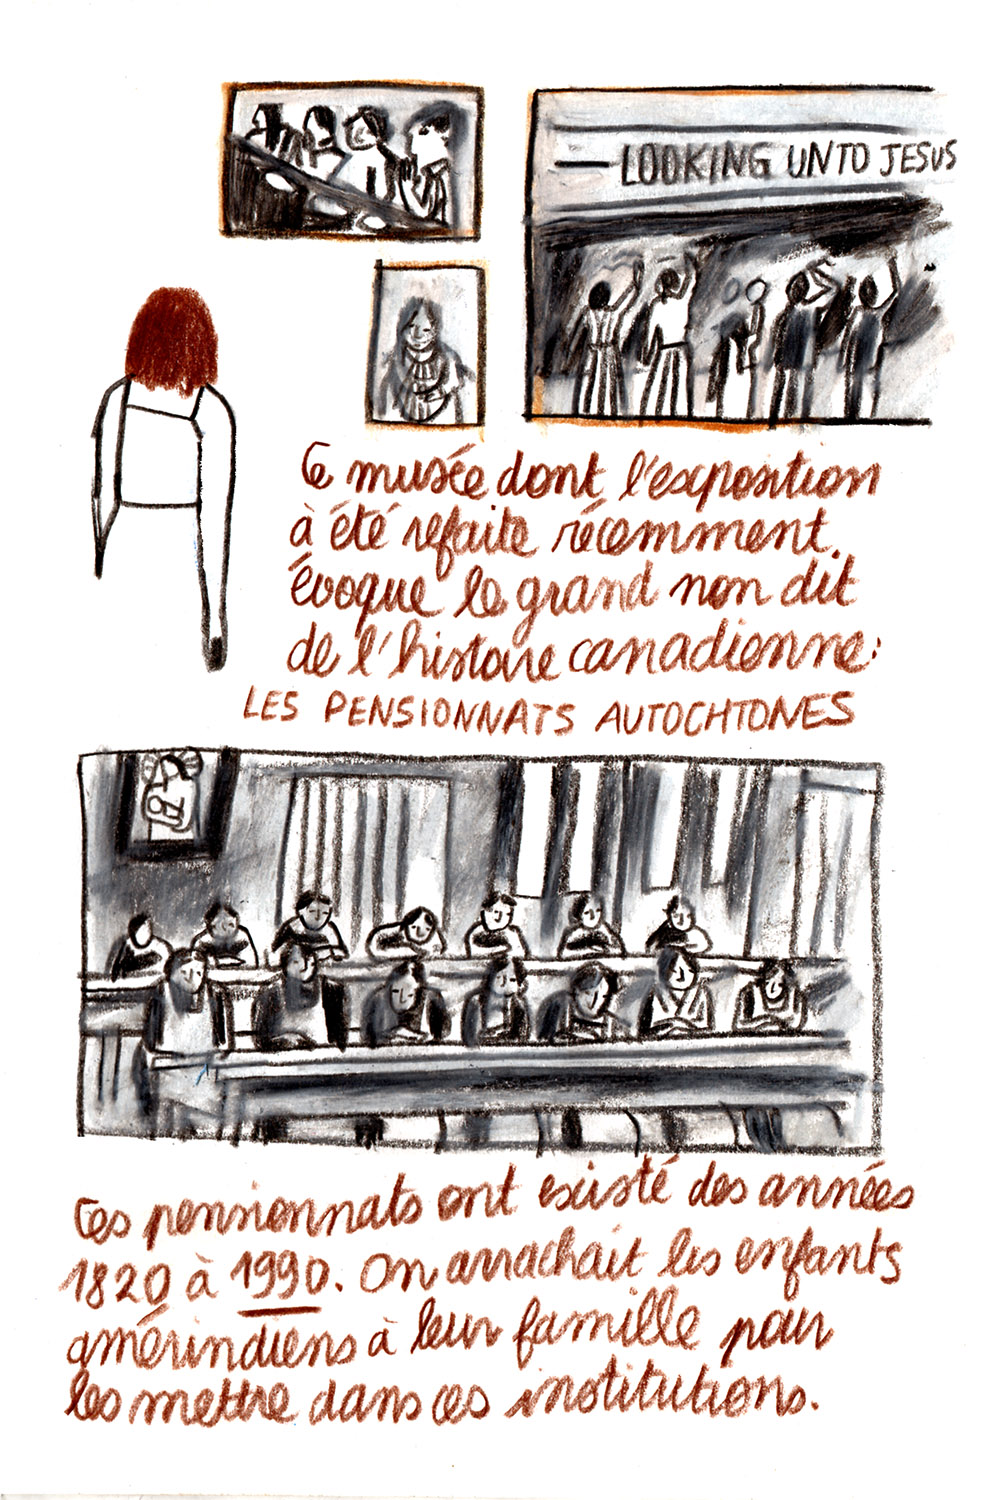 LOOKING UNTO JESUS
Ce musée dont l'exposition
à été refaite récemment
évoque le grand non dit
de l'histoire canadienne:
LES PENSIONNATS AUTOCHTONES
Ces pensionnats ont existé des années
1820 à 1990. On arrachait les enfants
amérindiens à leur famille pour
les mettre dans ces institutions.